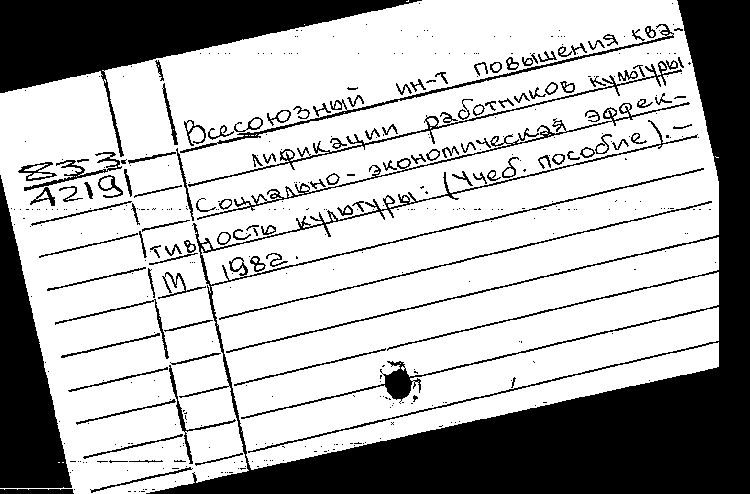 Всесоюзный ин-т повышения ква-
лификации работников культуры.
833
4219
Социально-экономическая эффек-
тивность культуры: (Учеб. пособие). –
М 1982.